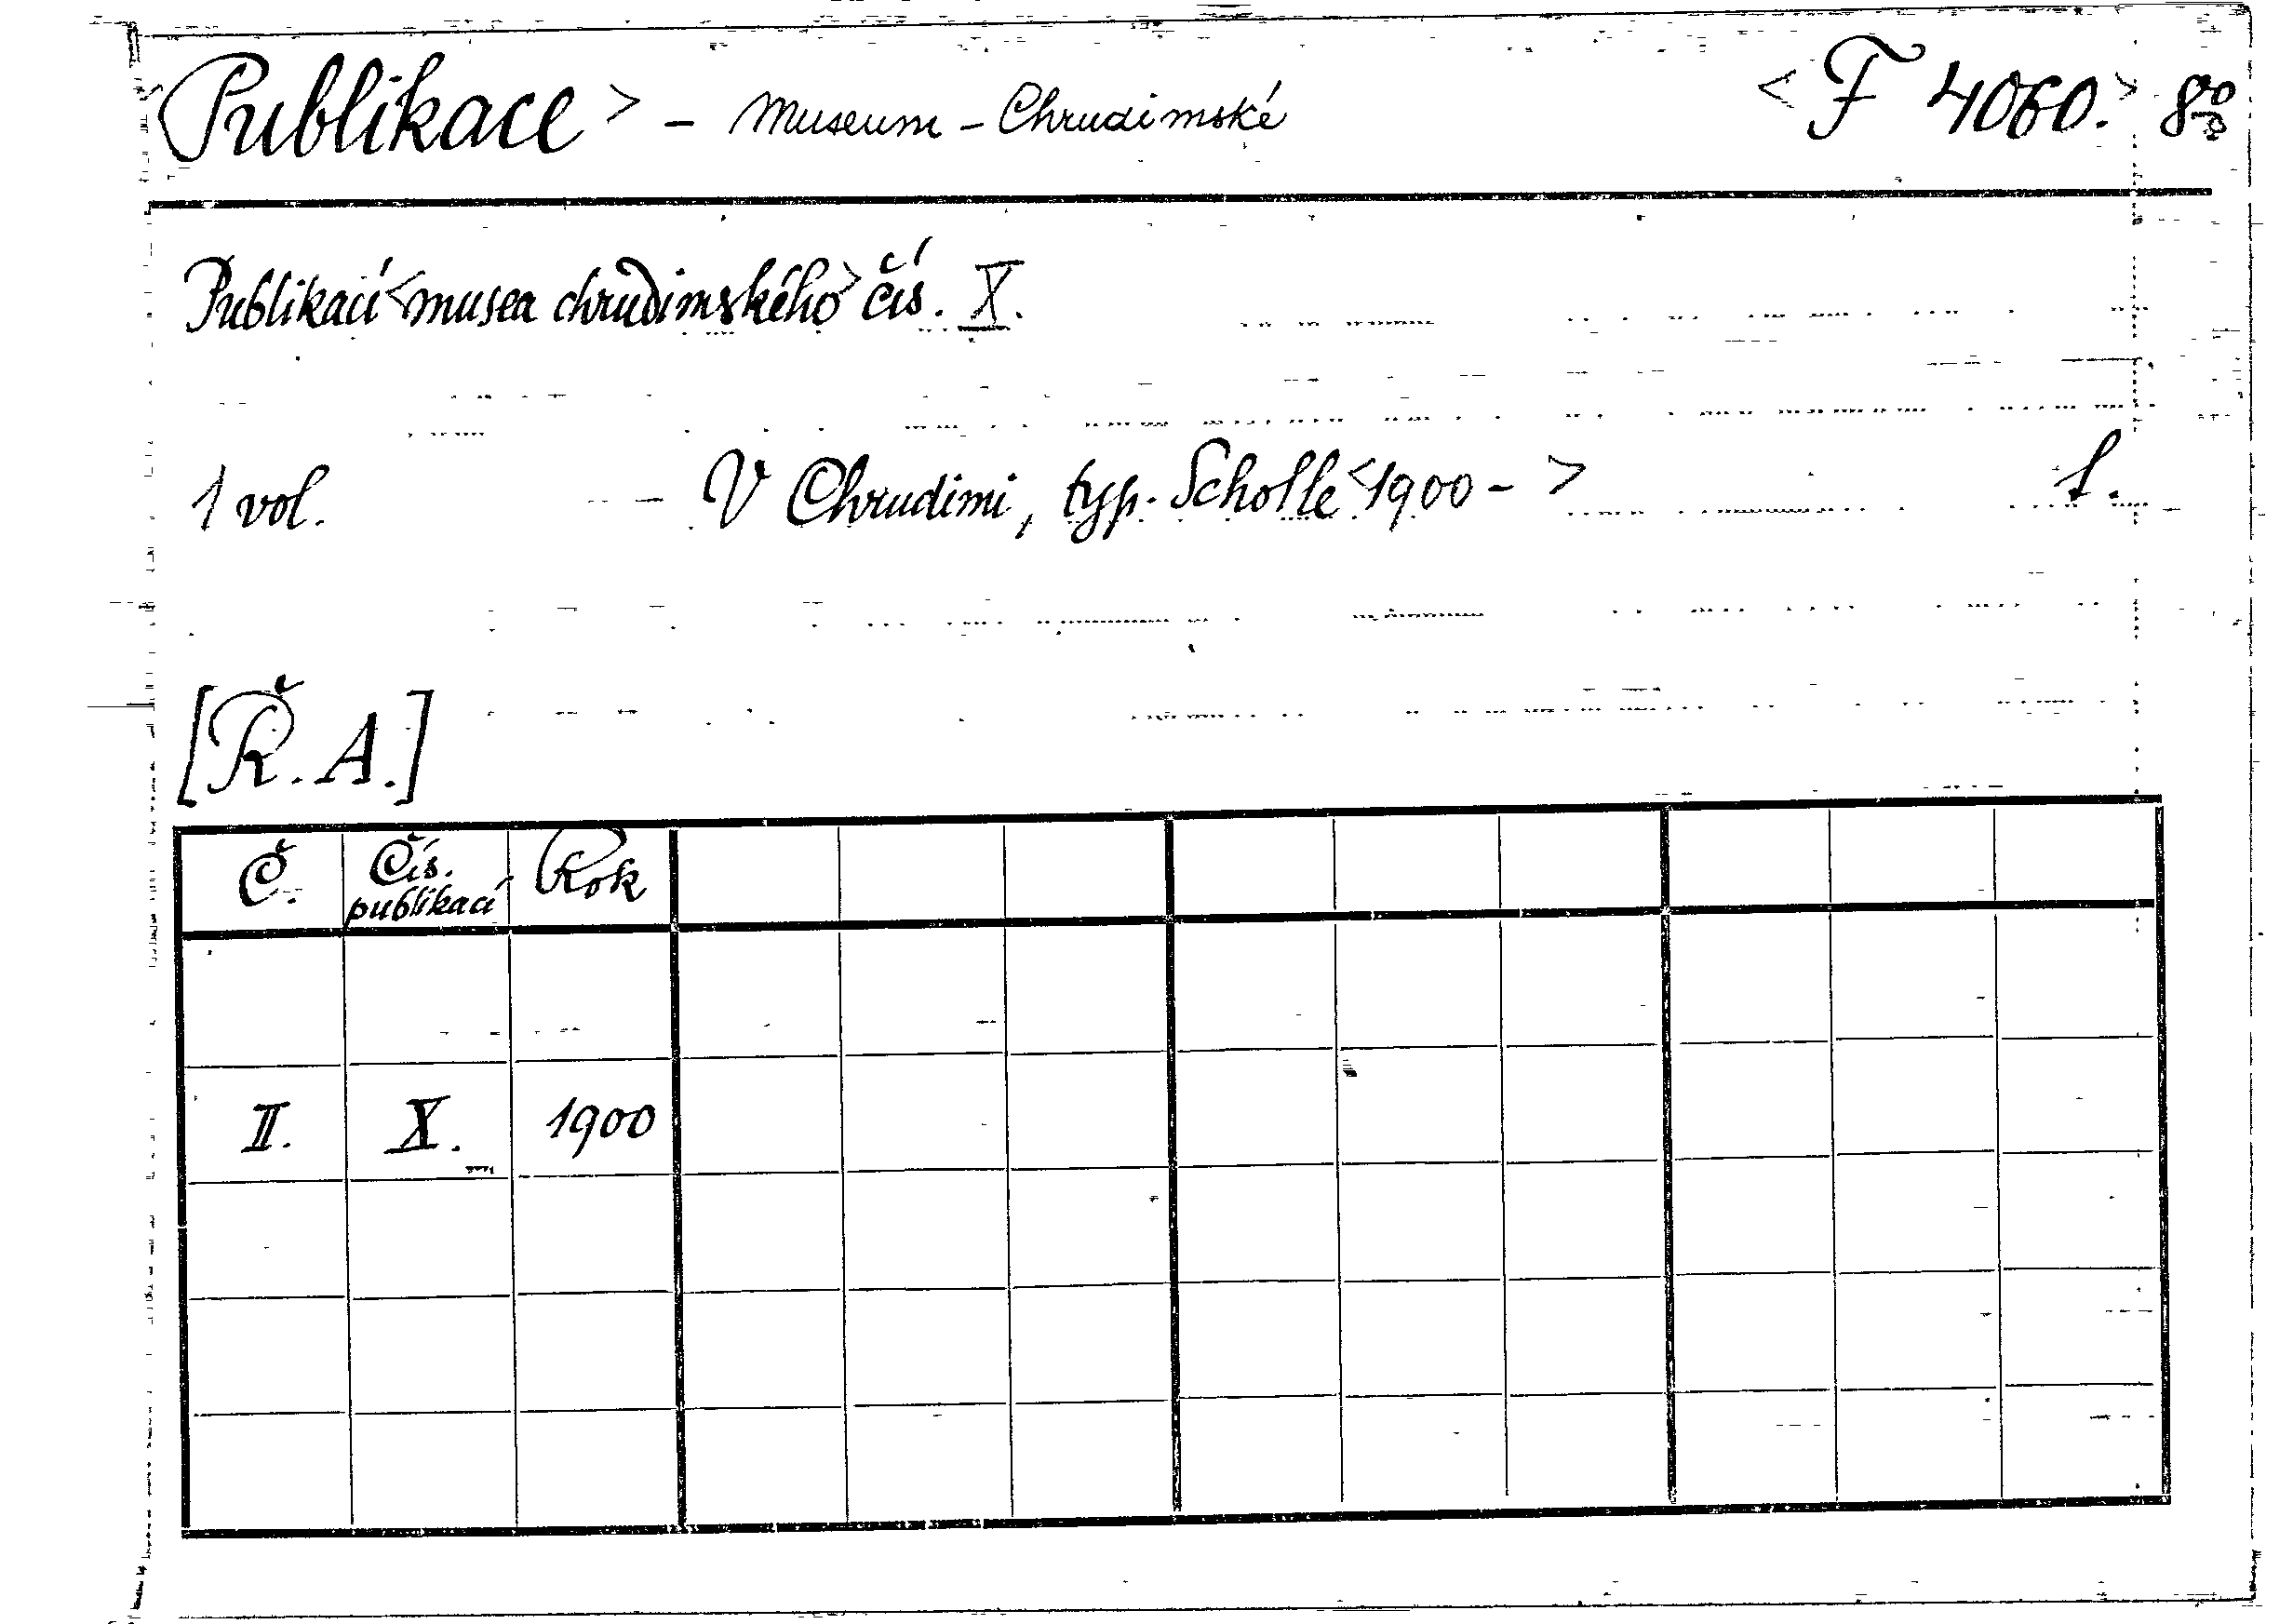 <Publikace> - Museum - Chrudimské <F 4060.> 8°
Publikací <musea chrudimského> čís. X.
1 vol. - V Chrudimi, typ. Scholle <1900 - > f.
[Ř. A.]
Č. Čís. publikací Rok
II. X. 1900